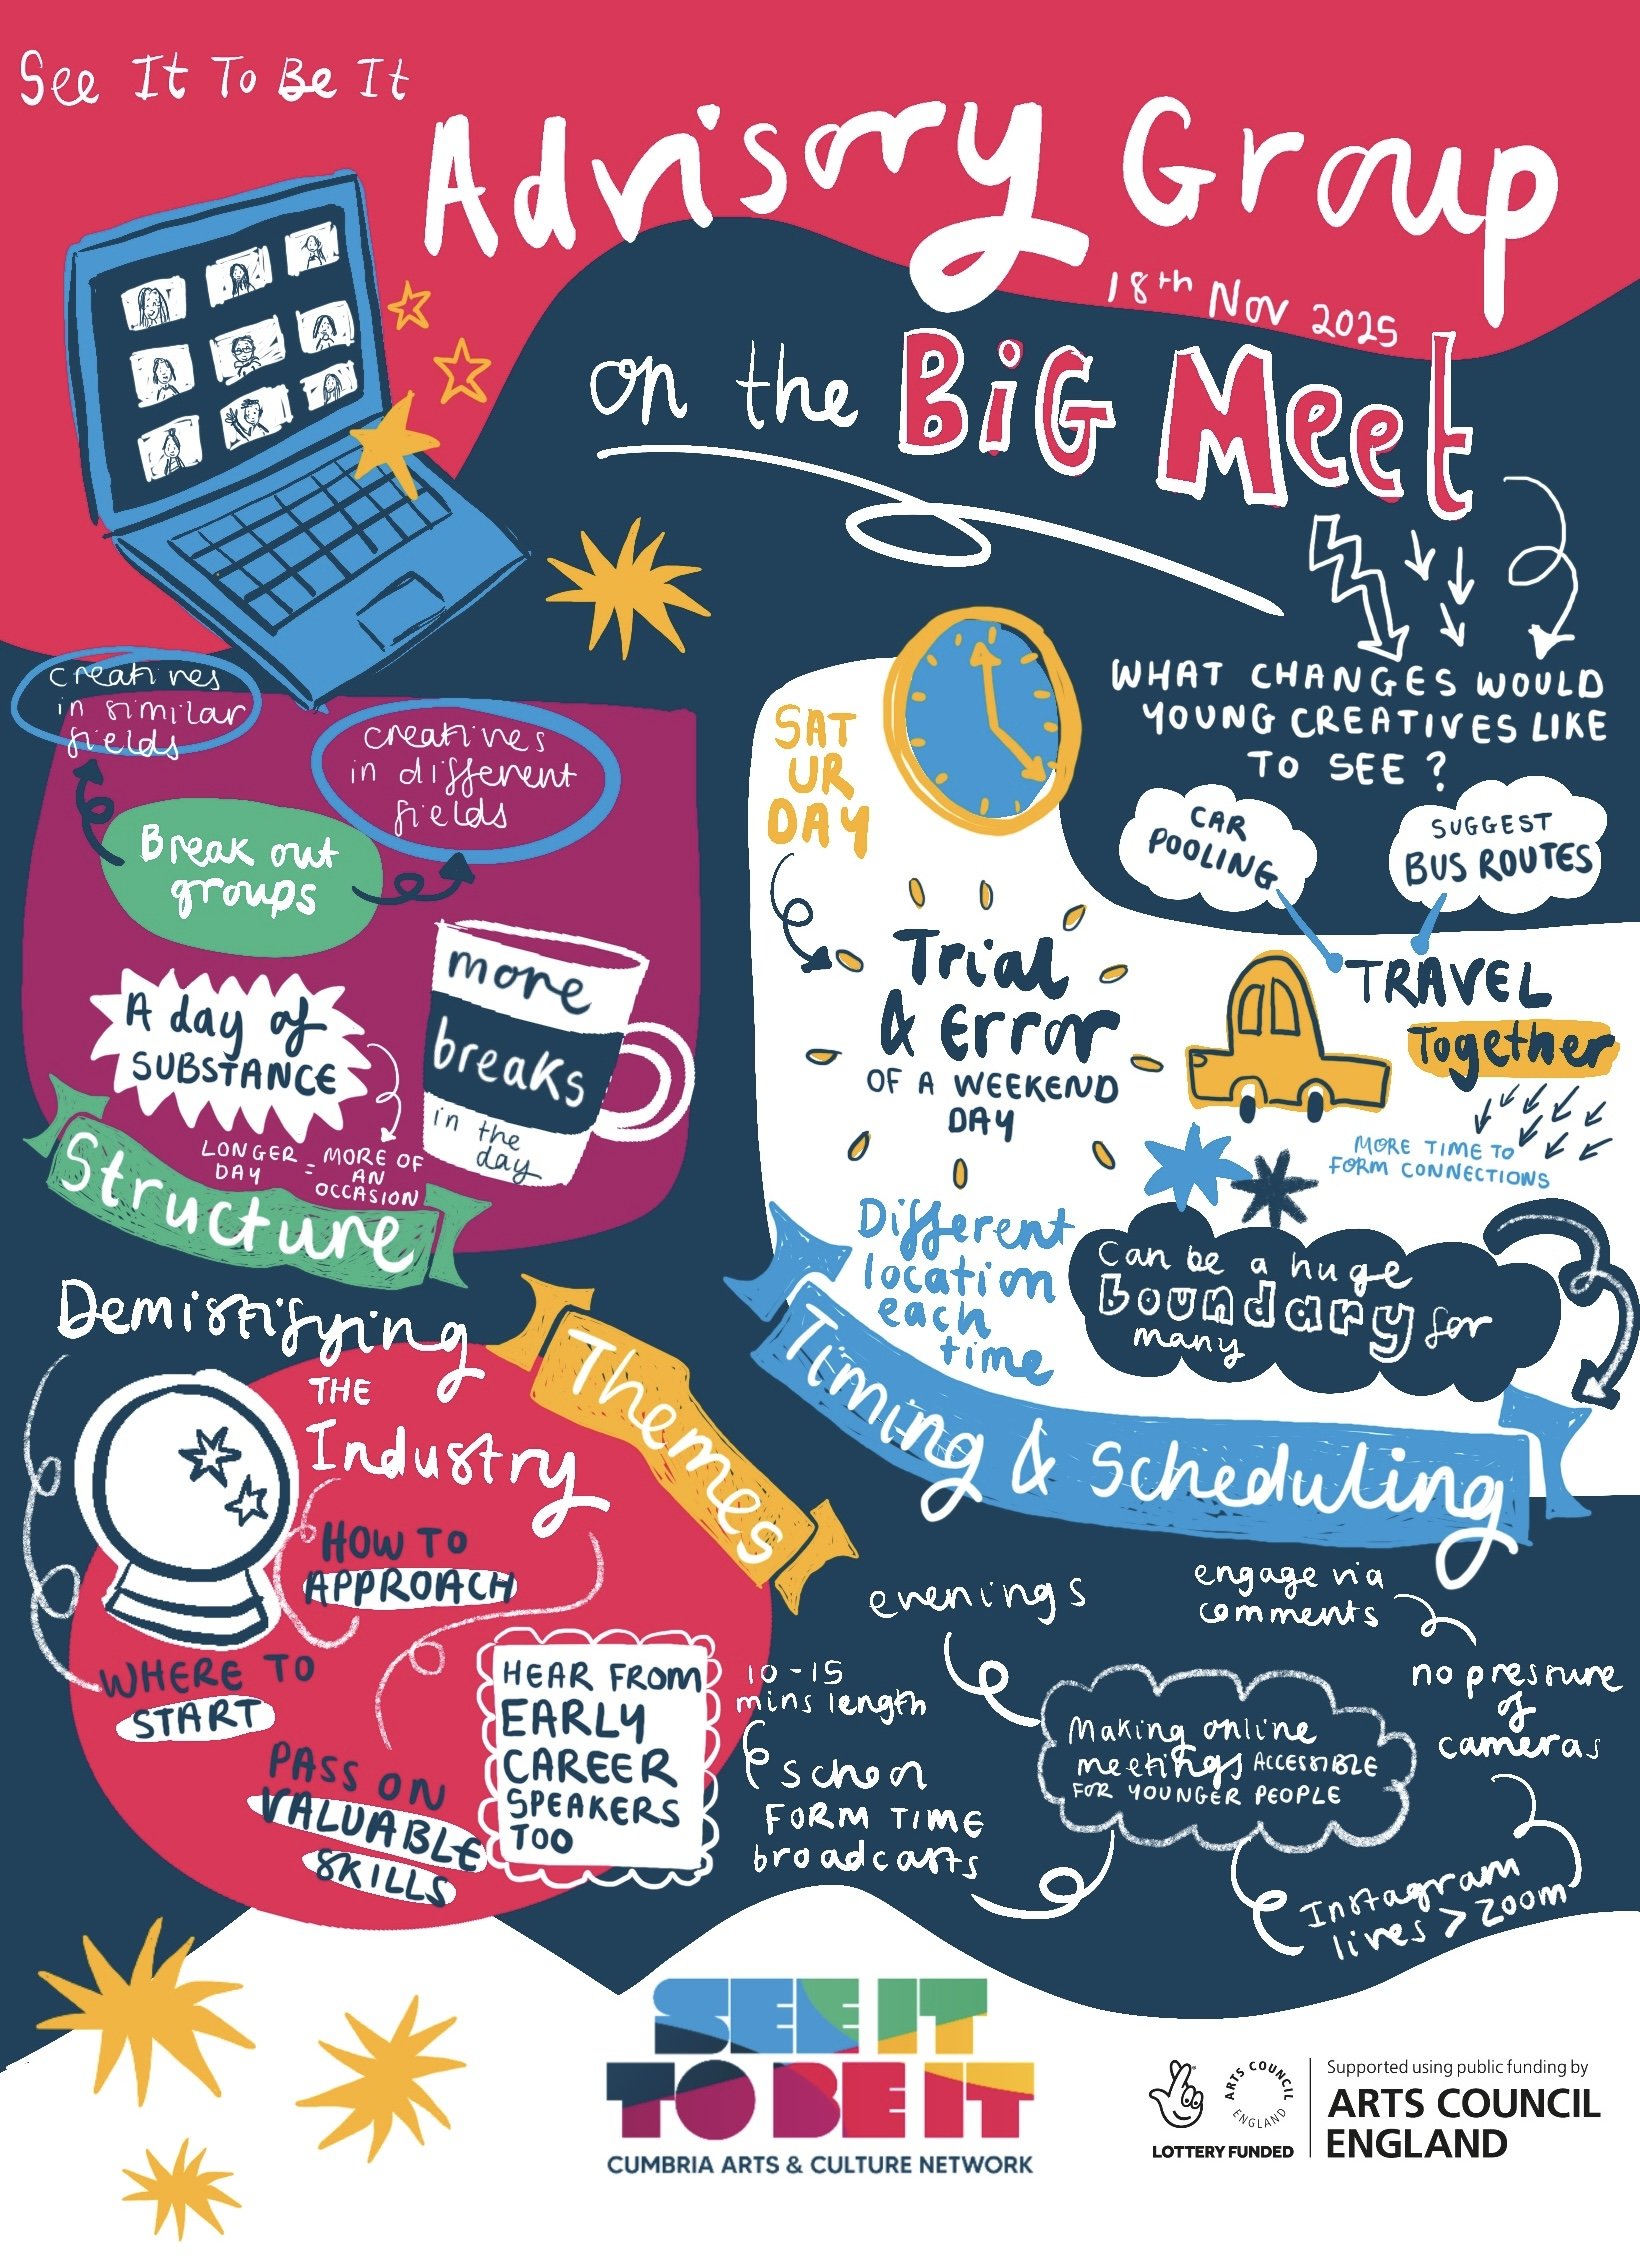 See It To Be It
Advisory Group
18th Nov 2025
on the BiG Meet
WHAT CHANGES WOULD
YOUNG CREATIVES LIKE
TO SEE?
creatives
in similar
fields
creatives
in different
fields
Break out
groups
A day of
SUBSTANCE
LONGER
DAY
=
MORE OF
AN
OCCASION
more
breaks
in the
day
Structure
SAT
UR
DAY
Trial
& Error
OF A WEEKEND
DAY
CAR
POOLING
SUGGEST
BUS ROUTES
TRAVEL
Together
MORE TIME TO
FORM CONNECTIONS
Different
location
each
time
Can be a huge
boundary for
many
Timing & Scheduling
Demistifying
THE
Industry
Themes
HOW TO
APPROACH
WHERE TO
START
PASS ON
VALUABLE
SKILLS
HEAR FROM
EARLY
CAREER
SPEAKERS
TOO
evenings
engage via
comments
10-15
mins length
no pressure
of
cameras
Making online
meetings ACCESSIBLE
FOR YOUNGER PEOPLE
school
FORM TIME
broadcasts
Instagram
lives > zoom
SEE IT
TO BE IT
CUMBRIA ARTS & CULTURE NETWORK
ARTS COUNCIL
ENGLAND
LOTTERY FUNDED
Supported using public funding by
ARTS COUNCIL
ENGLAND